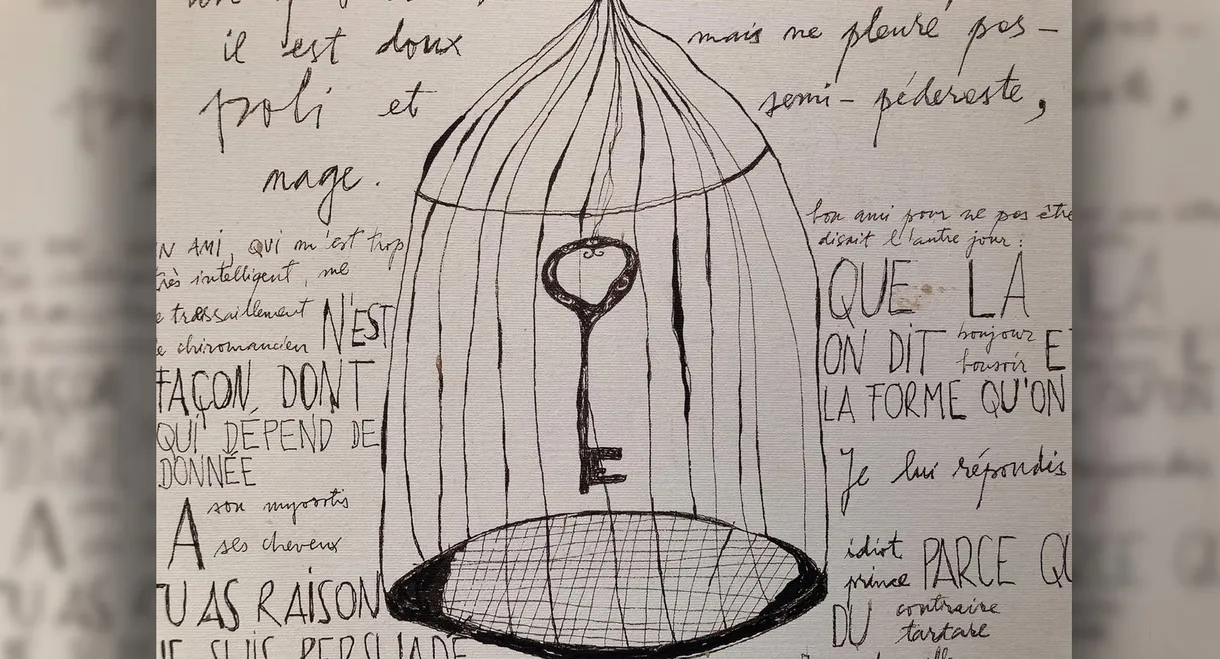 il est doux mais ne pleure pas –
poli et semi – péderaste,
nage.
N AMI, QUI m'est trop bon ami pour ne pas être
très intelligent, me disait l'autre jour :
e tressaillement
e chiromancien N'EST QUE LA
FAÇON DONT ON DIT bonjour bonsoir E
QUI DÉPEND DE LA FORME QU'ON
DONNÉE
A son myosotis
ses cheveux Je lui répondis
TU AS RAISON idiot prince PARCE QU
JE SUIS PERSUADÉ DU contraire tartare